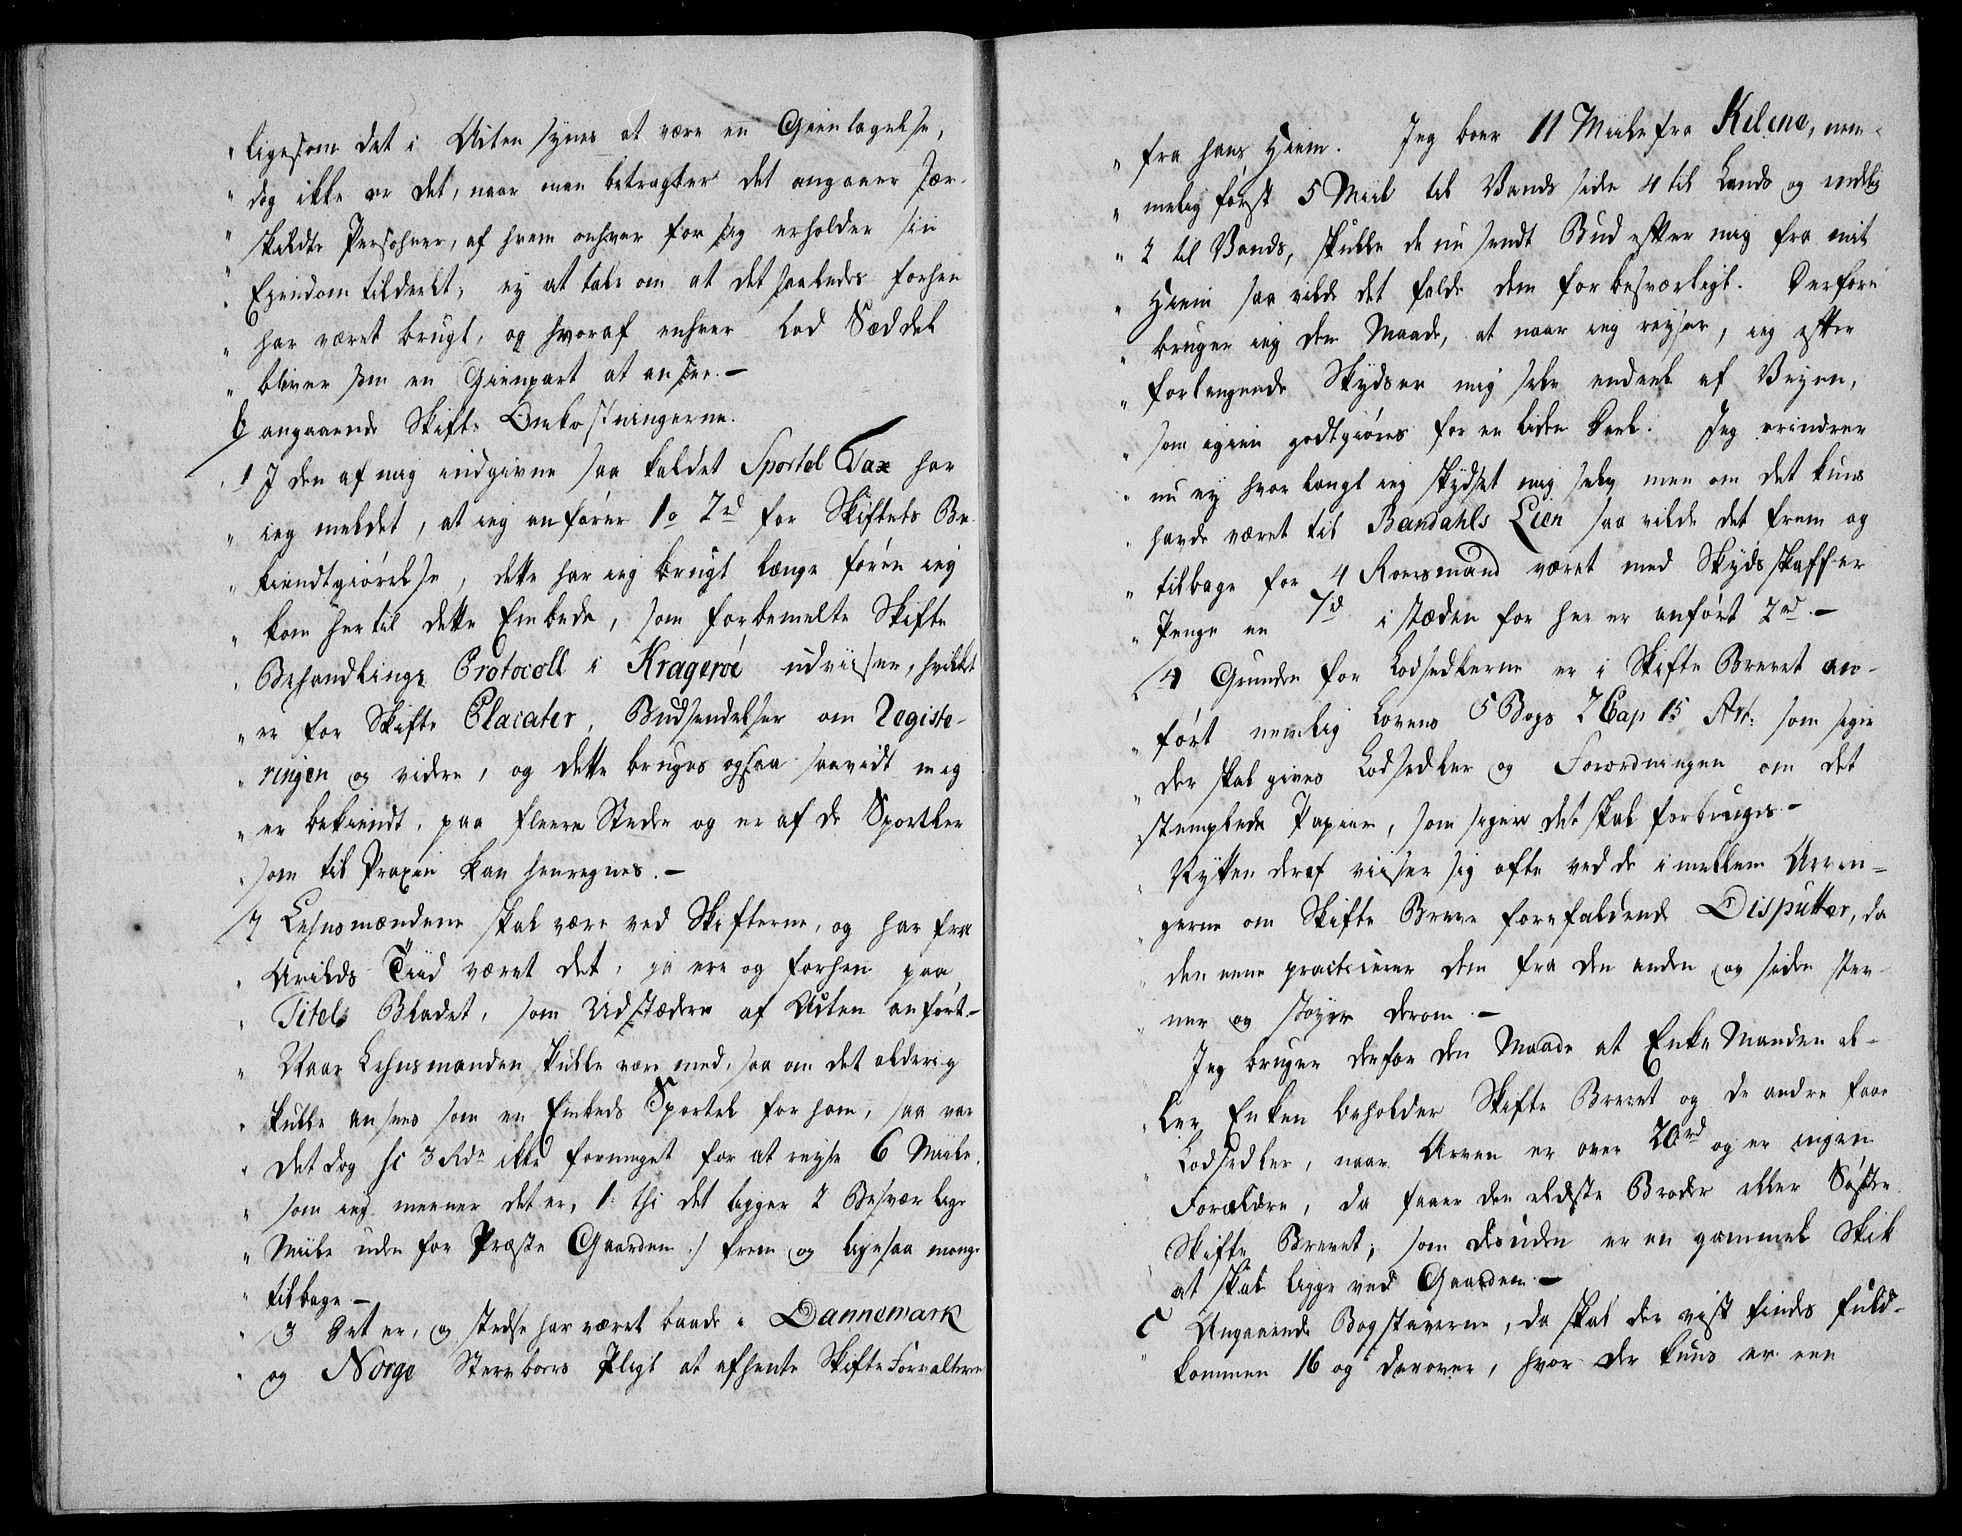 " ligesom det i Acten synes at være en Gientagelse,
" dog ikke er det, naar man betragter det angaaer sær-
" skildte Persohner, af hvem enhver for sig erholder sin
" Ejendom tildeelt; ey at tale om at det saaledes forhen
" har været brugt, og hvoraf enhver Lod Sæddel
" bliver som en Gienpart at ansee. –
b angaaende Skifte Omkostningerne.
" 1 I den af mig indgivne saa kaldet Sportel Tax har
" ieg meldet, at ieg anfører 1o 2rd for Skiftets Be-
" kiendtgiørelse, dette har ieg brugt længe førend ieg
" kom her til dette Embede, som forbemelte Skifte
" Behandlings Protocoll i Kragerøe udviiser, hvilket
" er for Skifte Placater, Budsendelser om Registe-
" ringen og videre, og dette bruges ogsaa saavidt mig
" er bekiendt, paa fleere Steder og er af de Sportler
" som til Praxin kan henregnes. –
" 2 Lehnsmændene skal være ved Skifterne, og har fra
" Arilds Tiid været det, ja ere og forhen paa
" Titels Bladet, som Udstædere af Acten anført. –
" Naar Lehnsmanden skulle være med, saa om det alderig
" skulle ansees som en Embeds Sportel for ham, saa var
" det dog jo 3 Rdr ikke formeget for at reyse 6 Miile,
" som ieg meener det er, /: thi det ligger 2 Besværlige
" Miile uden for Præste Gaarden :/ frem og ligesaa mange
" tilbage –
" 3 Det er, og stedse har været baade i Dannemark
" og Norge Sterv boers Pligt at afhente Skifte Forvalteren
" fra hans Hiem. Jeg boer 11 Miile fra Kilene, nem-
" melig først 5 Miil til Vands siden 4 til Lands og endelig
" 2 til Vands, skulle de nu sendt Bud efter mig fra mit
" Hiem saa vilde det falde dem for besværligt. Derfore
" bruger ieg den Maade, at naar ieg reyser, ieg efter
" forlangende Skydser mig selv endeel af Veyen,
" som igien godtgiøres for en liden Deel. Jeg erindrer
" nu ey hvor langt ieg skydset mig selv men om det kuns
" havde været til Bandahls Lien saa vilde det frem og
" tilbage for 4 Roersmænd været med Skydsskaffer
" Penge en 7rd i stæden for her er anført 2rd. –
" 4 Grunden for Lodsedlerne er i Skifte Brevet an-
" ført nemlig Lovens 5 Bogs 2 Cap 15 Art: som siger
" der skal gives Lodsedler og Forordningen om det
" stemplede Papiir, som siger det skal forbruges –
" Nytten deraf viiser sig ofte ved de i mellem Arvin-
" gerne om Skifte Breve forefaldende Disputter, da
" den eene practicerer dem fra den anden og siden stev-
" ner og støyer derom. –
" Jeg bruger derfor den Maade at Enke Manden el-
" ler Enken beholder Skifte Brevet og de andre faae
" Lodsedler, naar Arven er over 20rd og er ingen
" Forældre, da faaer den eldste Broder eller Søster
" Skifte Brevet, som desuden er en gammel Skik
" at skal ligge ved Gaarden –
c Angaaende Bogstaverne, da skal der vist findes fuld-
" kommen 16 og derover, hvor der kuns er een